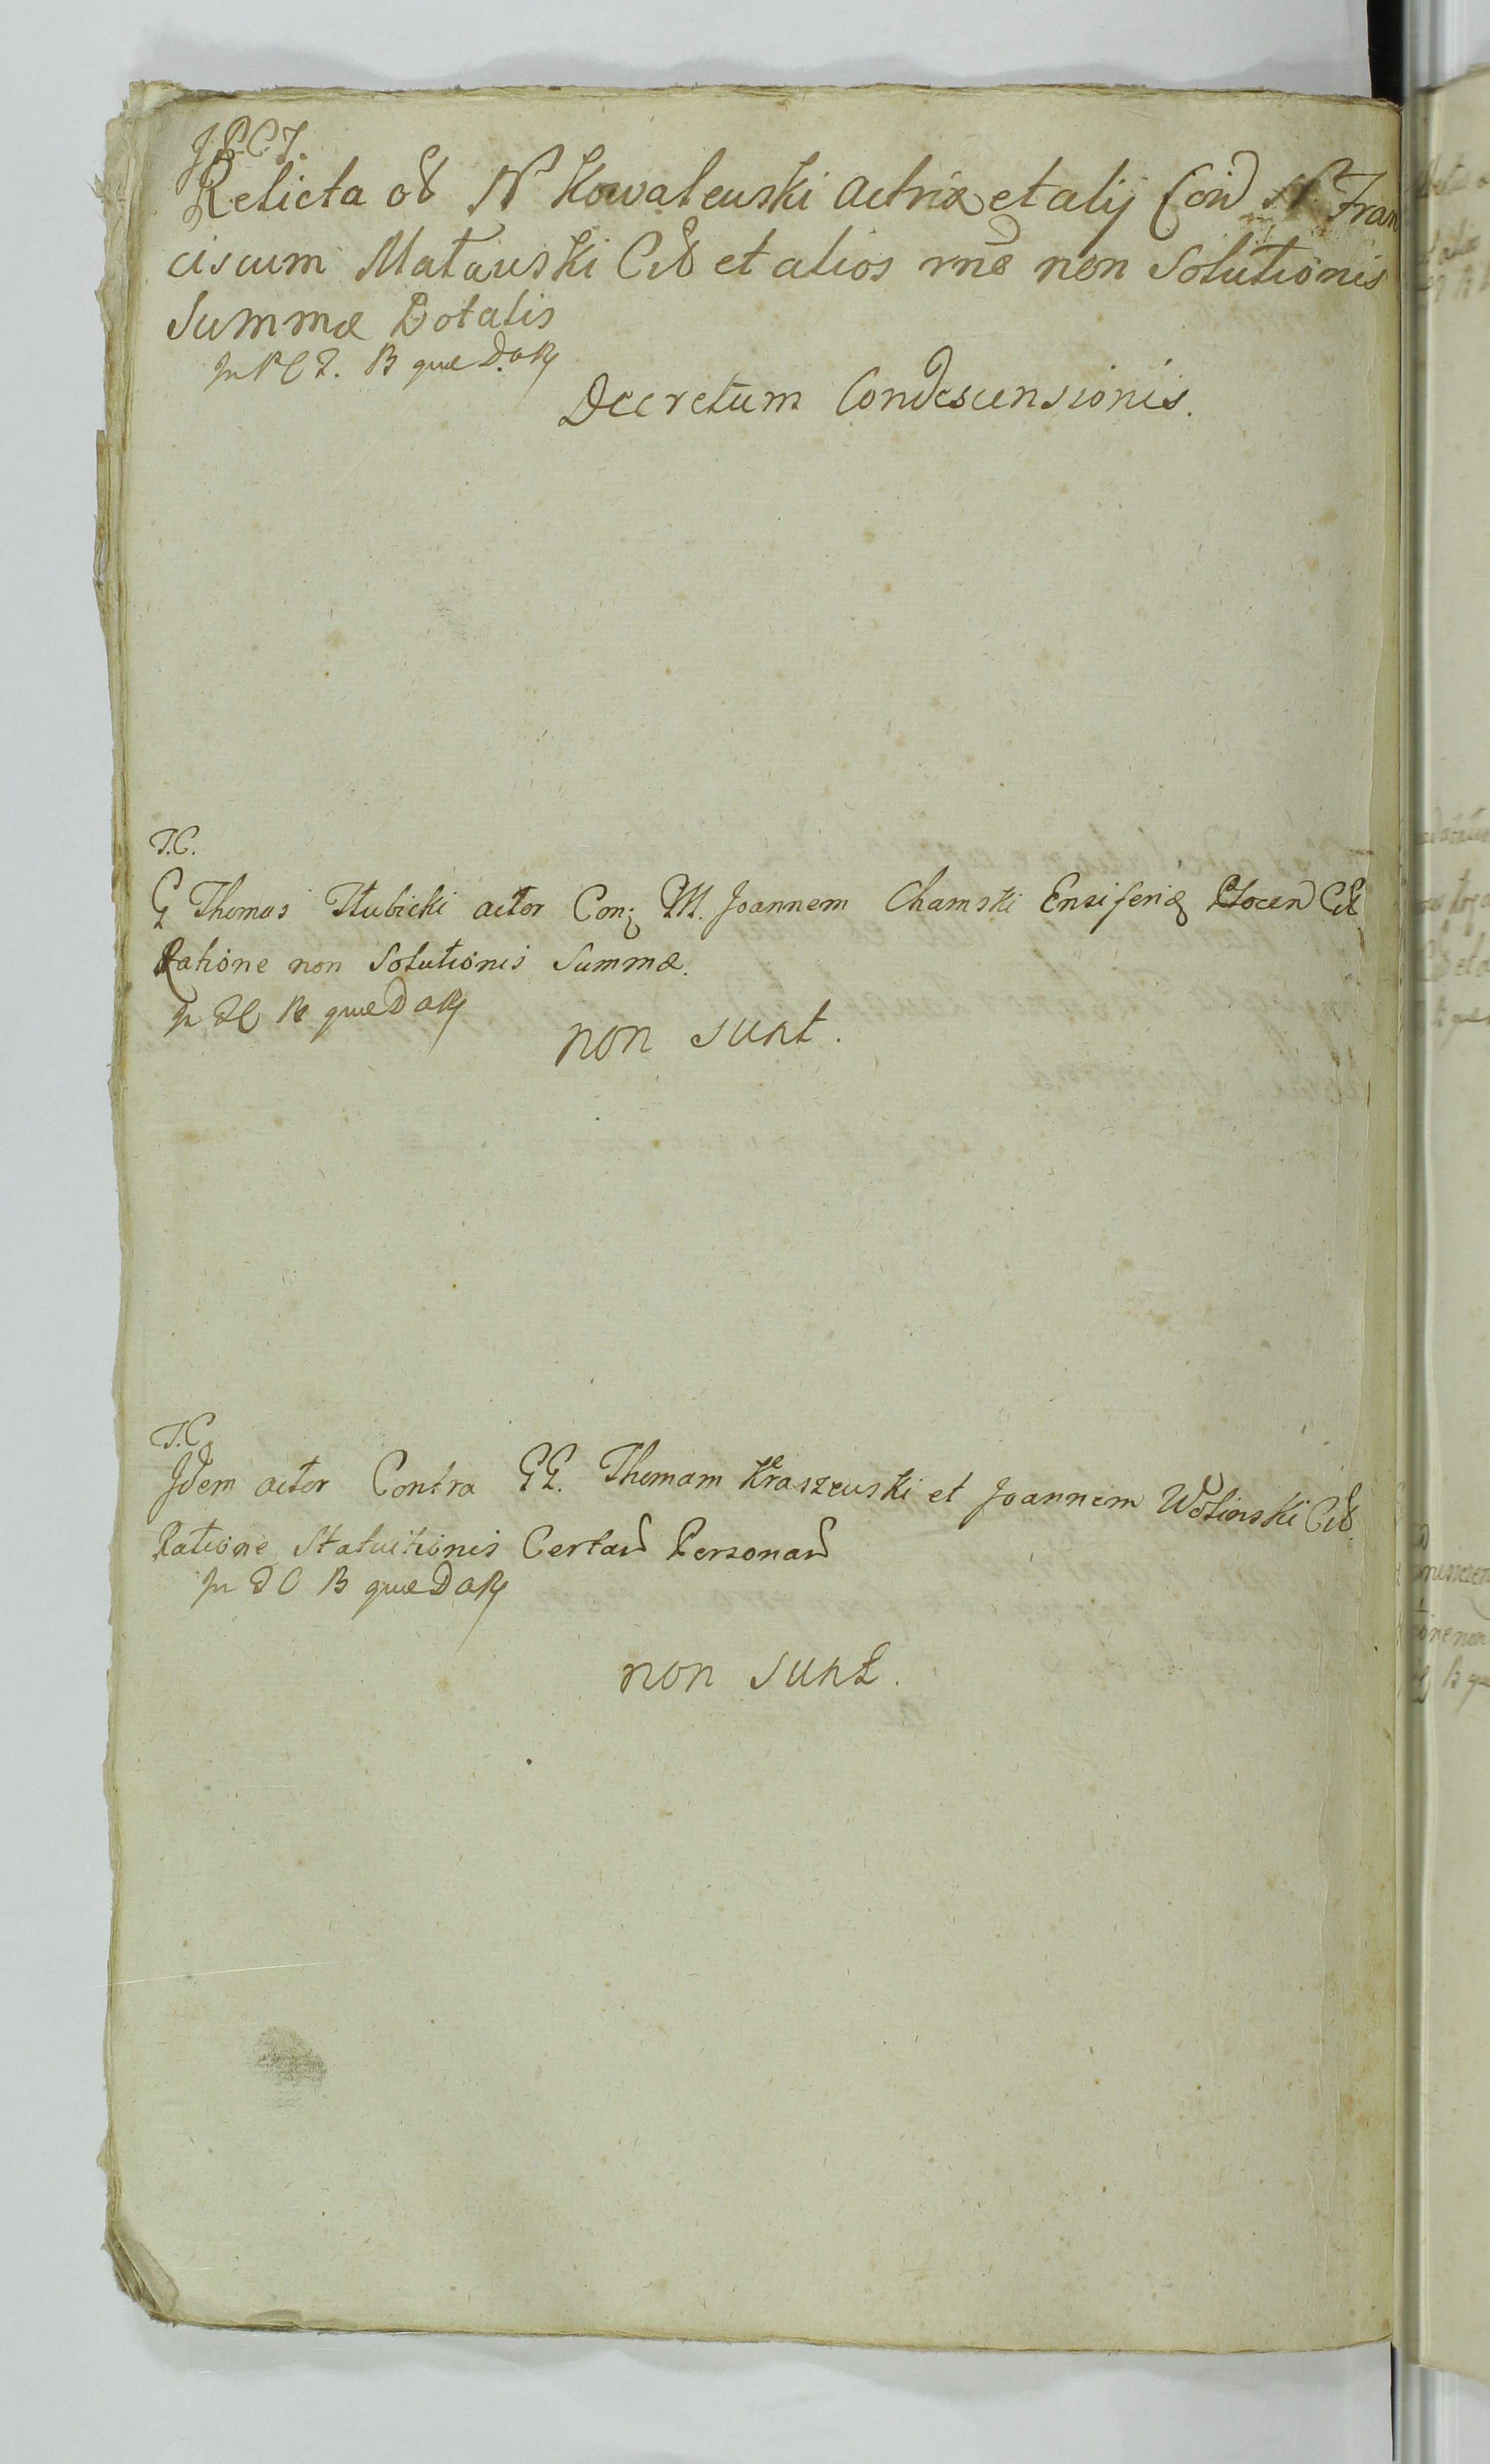 J.P.C.T.
Relicta olb N Kowalewski Actrix et alij Con N. Fran
ciscum Matawski Citt et alios rne non Solutionis
Summæ Dotalis
In P C T. B quæ D. aR
Decretum Condescensionis.
T.C.
G Thomas Hubicki actor Con; M. Joannem Chamski Ensiferu Plocen Citt
Ratione non Solutionis Summæ.
In T C B quæ D aR
non sunt.
T.C.
Idem actor Contra GG. Thomam Kraszewski et Joannem Wolinski Citt
Ratione Statuitionis Certar Personar
In T C B quæ D aR
non sunt.